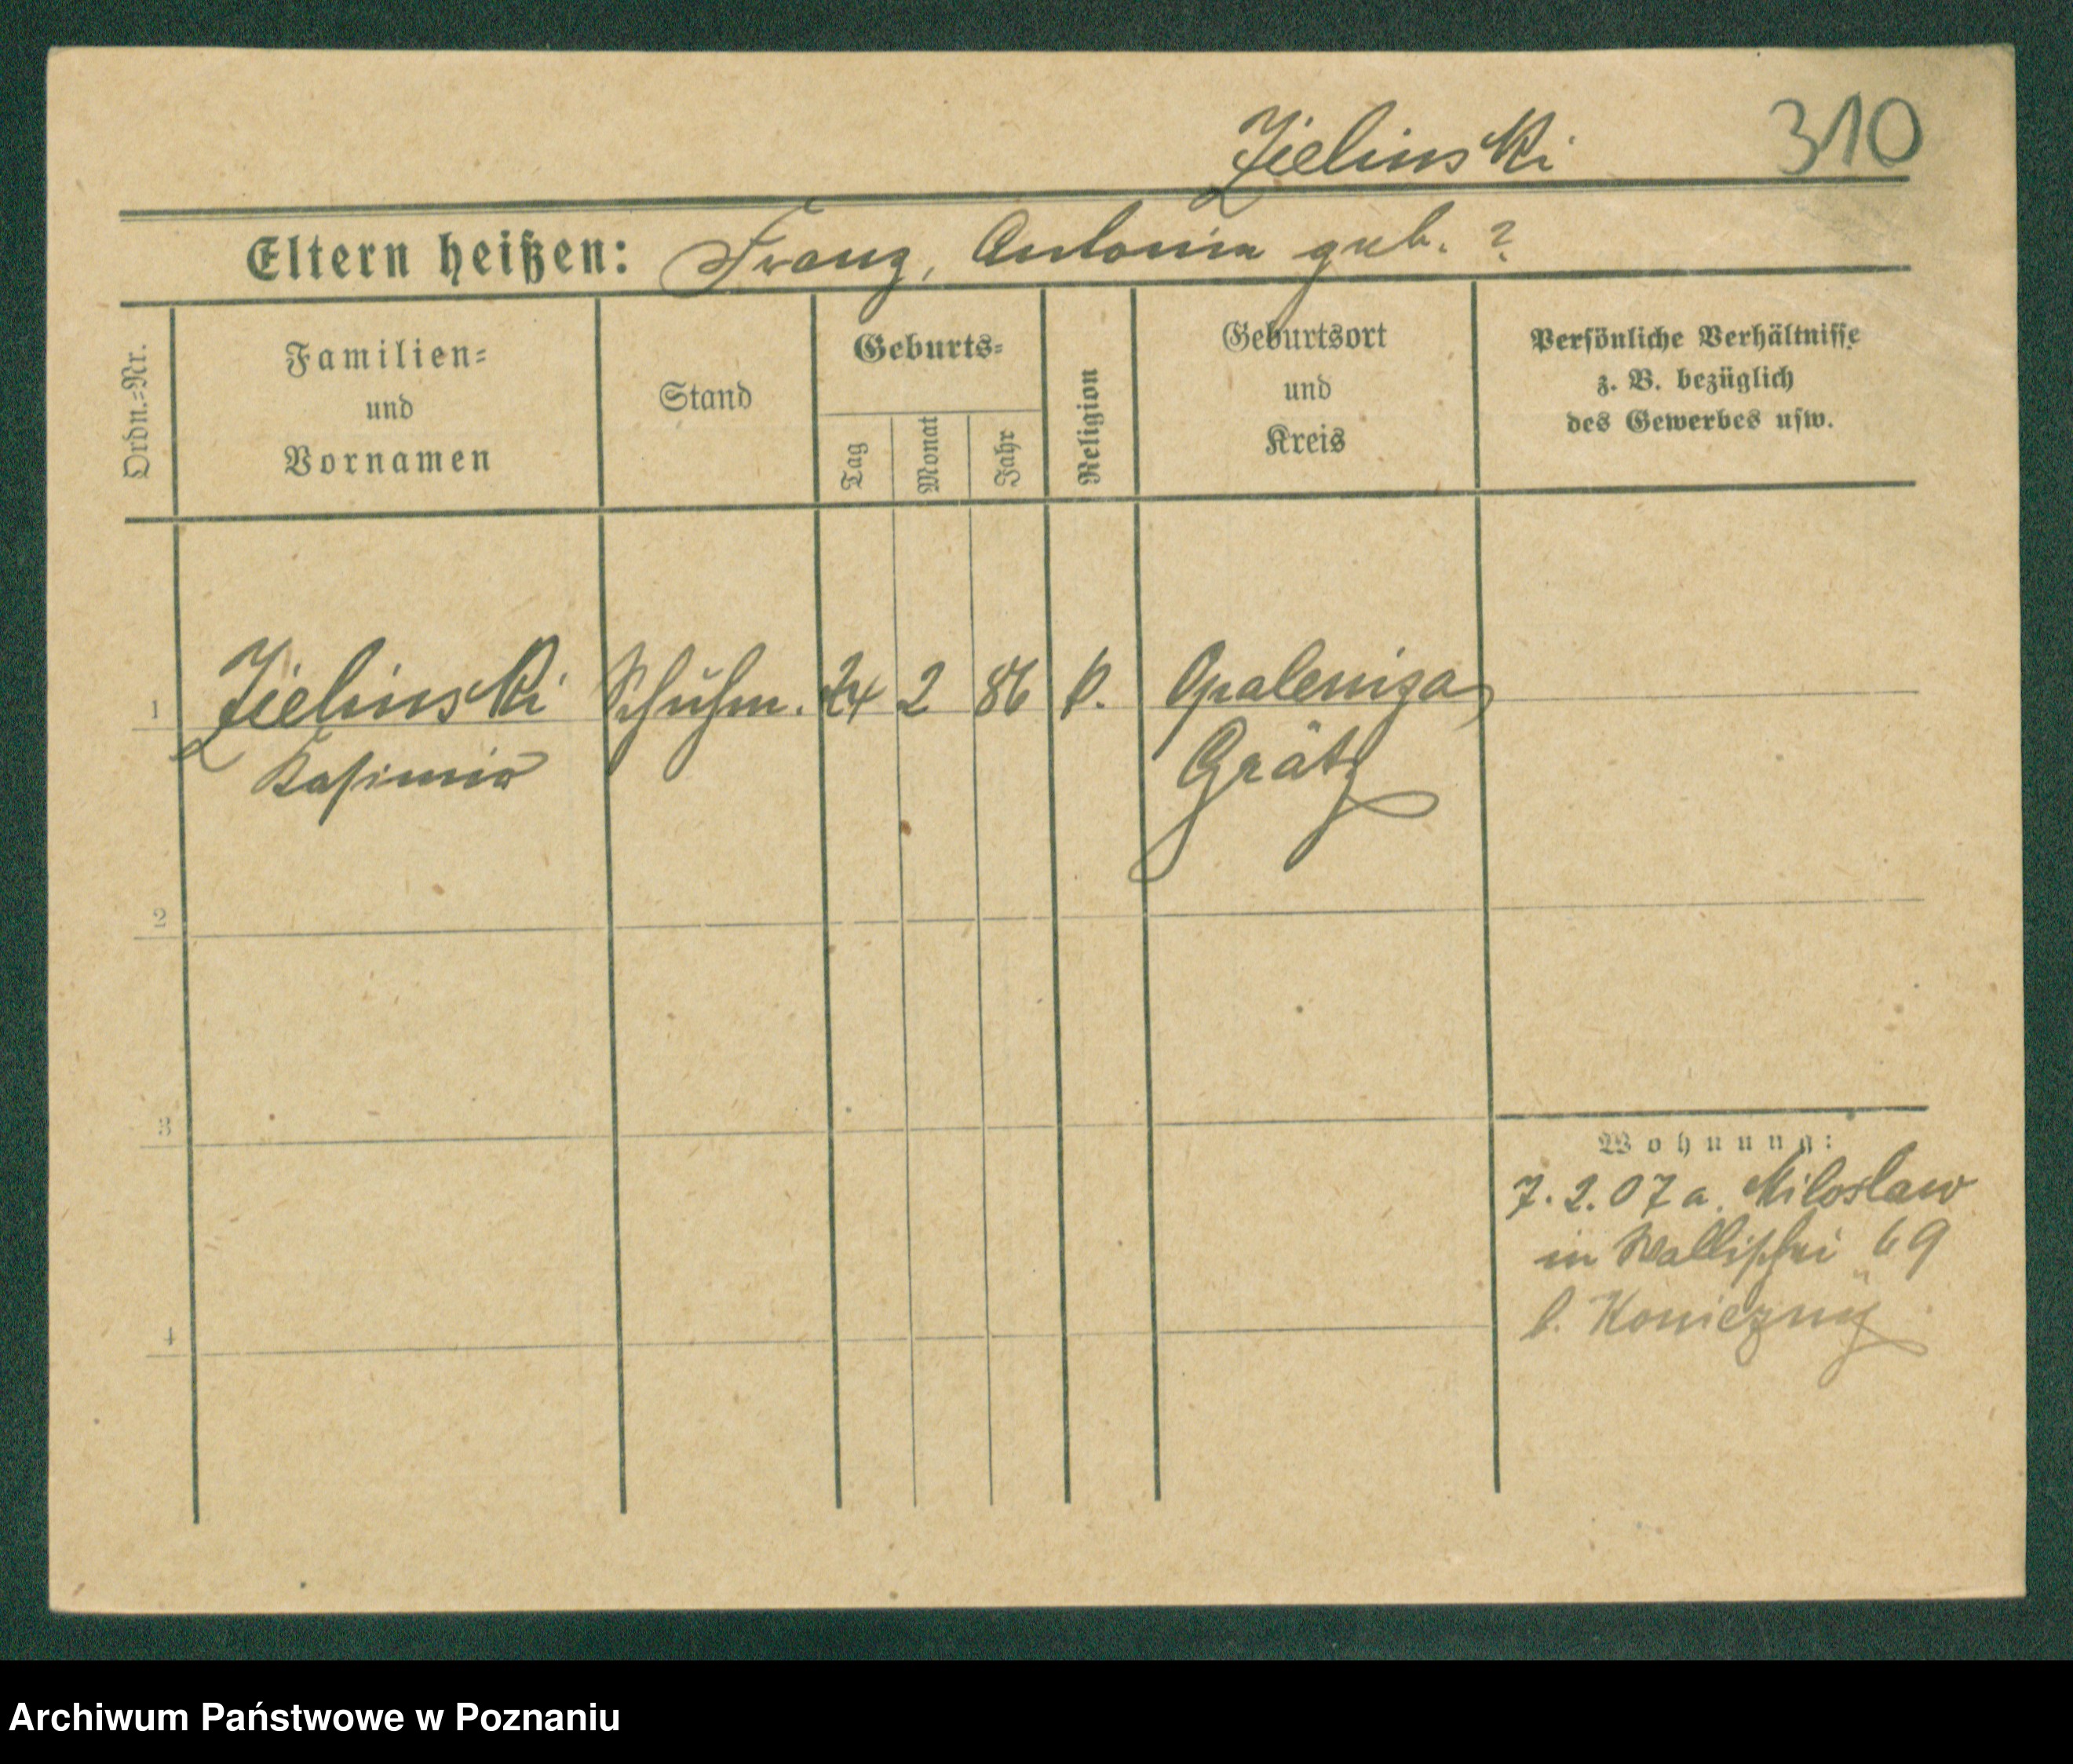 Zielinski 310
Eltern heißen: Franz, Antonia geb. ?
Ordn.=Nr.
Familien=
und
Vornamen
Stand
Geburts=
Tag
Monat
Jahr
Religion
Geburtsort
und
Kreis
Persönliche Verhältnisse
z. B. bezüglich
des Gewerbes usw.
1 Zielinski Schuhm. 24 2 86 k. Opaleniza
Kasimir Grätz
2
3
Wohnung:
7.2.07 a. Miloslaw
in Wallischei 69
b. Koniezny
4
Archiwum Państwowe w Poznaniu